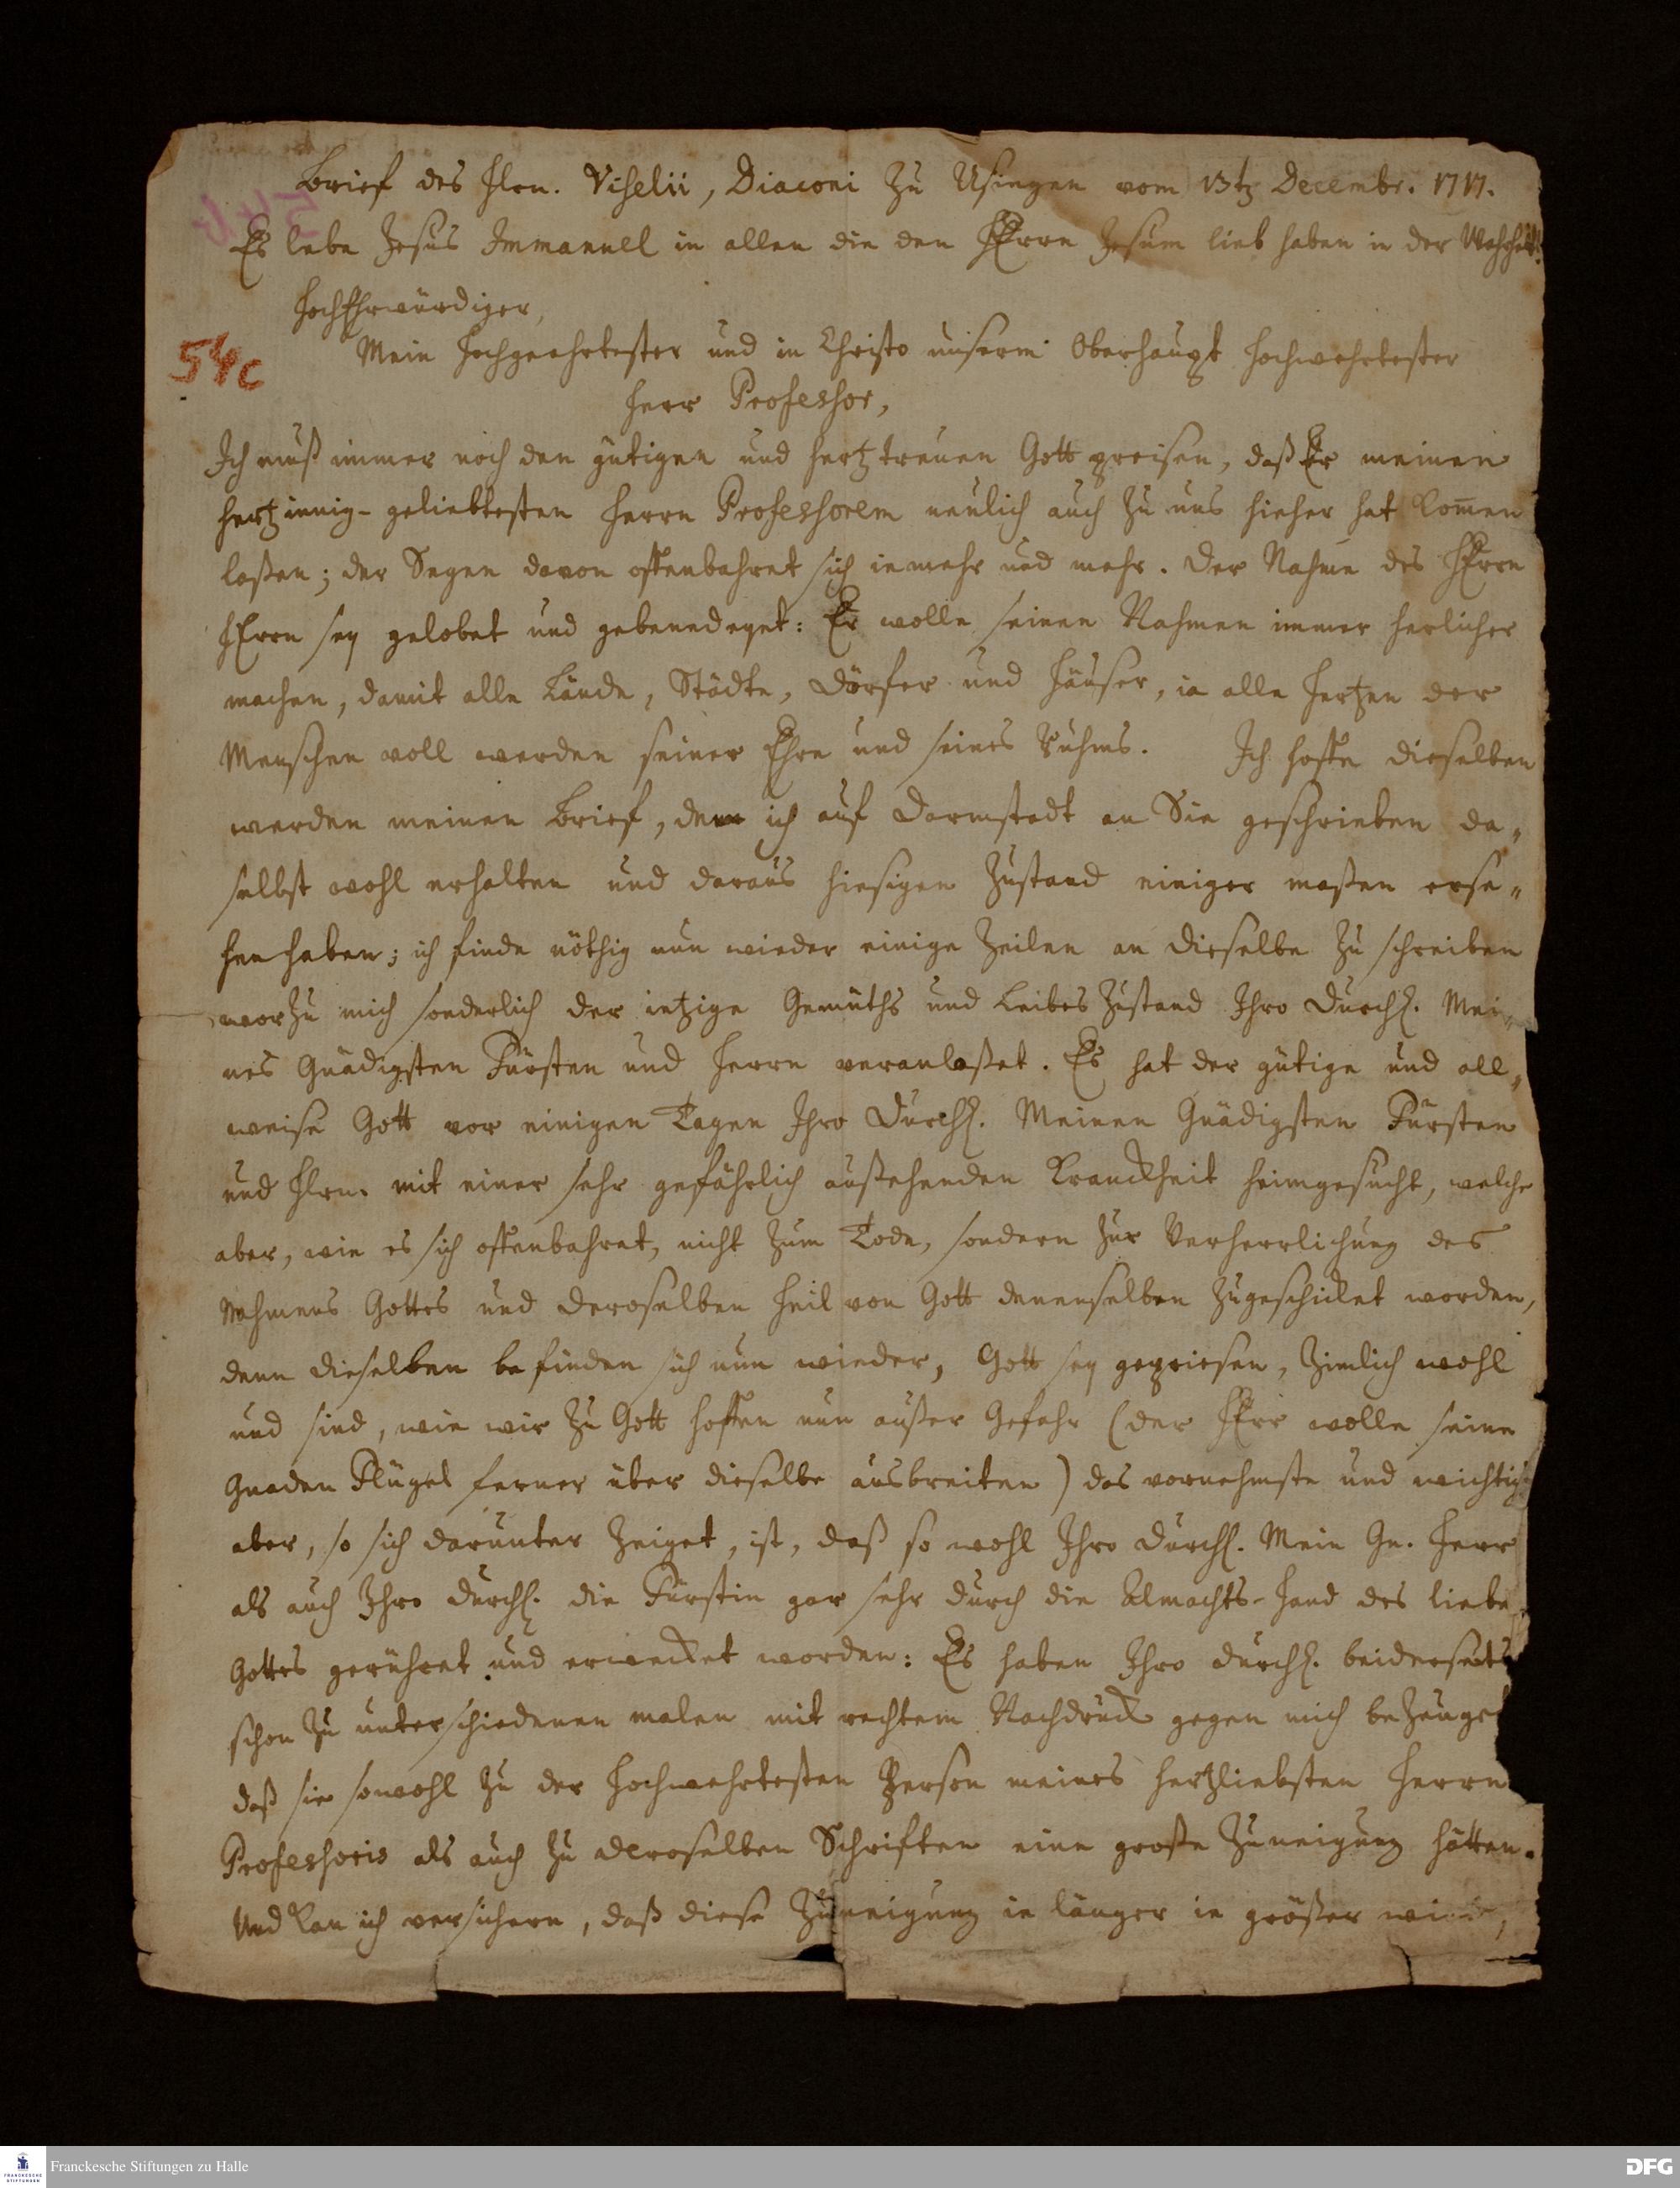 Brief des Hln. Viselii, Diaconi zu Usingen vom 13tz Decembr. 1717.
Es lebe Jesus Immanuel in allen die den HErrn Jesum lieb haben in der Wahrheit!
HochEhrwürdiger,
54c
Mein Hochgeehrtester und in Christo unserm Oberhaupt Hochwehrtester
Herr Professor,
Ich muß immer noch den gütigen und hertztreuen Gott preisen, daß Er meinen
hertzinnig-geliebtesten Herrn Professorem neulich auch zu uns hieher hat kom̅en
laßen; der Segen davon offenbahret sich ie mehr und mehr. Der Nahme des HErrn
HErrn sey gelobet und gebenedeyet: Er wolle seinen Nahmen immer herlicher
machen, damit alle Lände, Städte, Dörfer und Häuser, ia alle Hertzen der
Menschen voll werden seiner Ehre und seines Ruhms. Ich hoffe dieselben
werden meinen Brief, den ich auf Darmstadt an Sie geschrieben da„
selbst wohl erhalten und daraus hiesigen Zustand einiger maßen erse„
hen haben; ich finde nöthig nun wieder einige Zeilen an dieselbe zu schreiben
worzu mich sonderlich der ietzige Gemüths und Leibes Zustand Ihro Durchl. Mei„
nes Gnädigsten Fürsten und Herrn veranlaßet. Es hat der gütige und all„
weise Gott vor einigen Tagen Ihro Durchl. Meinen Gnädigsten Fürsten
und Hln. mit einer sehr gefährlich außehenden Kranckheit heimgesucht, welche
aber, wie es sich offenbahret, nicht zum Tode, sondern zur Verherrlichung des
Nahmens Gottes und deroselben Heil von Gott denenselben zugeschicket worden,
denn dieselben befinden sich nun wieder, Gott sey gepriesen, zimlich wohl
und sind, wie wir zu Gott hoffen nun außer Gefahr (der HErr wolle seine
Gnaden Flügel ferner über dieselbe ausbreiten) das vornehmste und wichtig
aber, so sich darunter zeiget, ist, daß so wohl Ihro Durchl. Mein Gn. Herr
als auch Ihro Durchl. die Fürstin gar sehr durch die Almachts-Hand des liebe
Gottes gerühret und erwecket worden: Es haben Ihro Durchl. beiderseits
schon zu unterschiedenen malen mit rechtem Nachdruck gegen mich bezeuget
daß sie sowohl zu der Hochwehrtesten Person meines hertzliebsten Herrn
Professoris als auch zu deroselben Schriften eine große Zuneigung hätten.
Und kan ich versichern, daß diese Zuneigung ie länger ie größer wird,
Franckesche Stiftungen zu Halle
FRANCKESCHE STIFTUNGEN
DFG